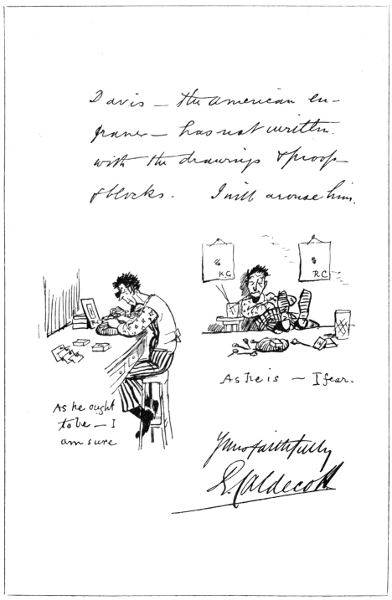 Davis — the American en-
graver — has not written
with the drawings & proofs
& blocks. I will arouse him.
R.C.
R.C.
As he is — I fear.
As he ought
to be — I
am sure
Yours faithfully
R. Caldecott